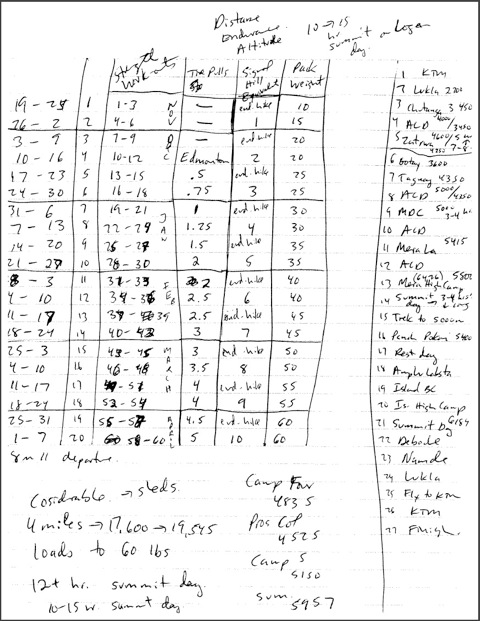 Distance
Endurance
Altitude
10 → 15
hr
summit on Logan
day.
Strength
Workouts
Tire Pulls
Signal
Hill
Equivalent
Pack
Weight
19 - 25 1 1-3 NOV — end. hike 10
26 - 2 2 4-6 — 1 15
3 - 9 3 7-9 DEC — end. hike 20
10 - 16 4 10-12 Edmonton 2 20
17 - 23 5 13-15 .5 end. hike 25
24 - 30 6 16-18 .75 3 25
31 - 6 7 19-21 JAN 1 end. hike 30
7 - 13 8 22-24 1.25 4 30
14 - 20 9 1.5 end. hike 35
21 - 27 10 28-30 2 5 35
11 FEB 2 end-hike 40
4 - 10 12 2.5 6 40
11 - 17 13 2.5 end-hike 45
18 - 24 14 3 7 45
25 - 3 15 MARCH 3 end. hike 50
4 - 10 16 3.5 8 50
11 - 17 17 4 end-hike 55
18 - 24 18 52-54 4 9 55
25 - 31 19 APRIL 4.5 end-hike 60
1 - 7 20 58-60 5 10 60
8 or 11 departure
→ sleds.
4 miles → 17,600 → 19,545
loads to 60 lbs
12+ hr. summit day.
10-15 hr. summit day
Camp Four
4835
Pros Col
4525
Camp 5
5150
sum.
5957
1 KTM
2 Lukla 2700
3 Chutanga 3450
4 ALD
5 Zatrwa 4600/5 hr
6 Gotay 3600
7 Tagnag 4350
8 ALD 5000/4350
9 MDC 5000 3-4 hr
10 ALD
11 Mera La 5415
12 ALD
13 Mera High Camp
14 Summit
15 Trek to 5000m
16 Panch Pokari 5400
17 Rest day
18 Amphu Labsta
19 Island BC
20 Is. High Camp
21 Summit Day
22
23 Namche
24 Lukla
25 Fly to KTM
26 KTM
27 Finish.